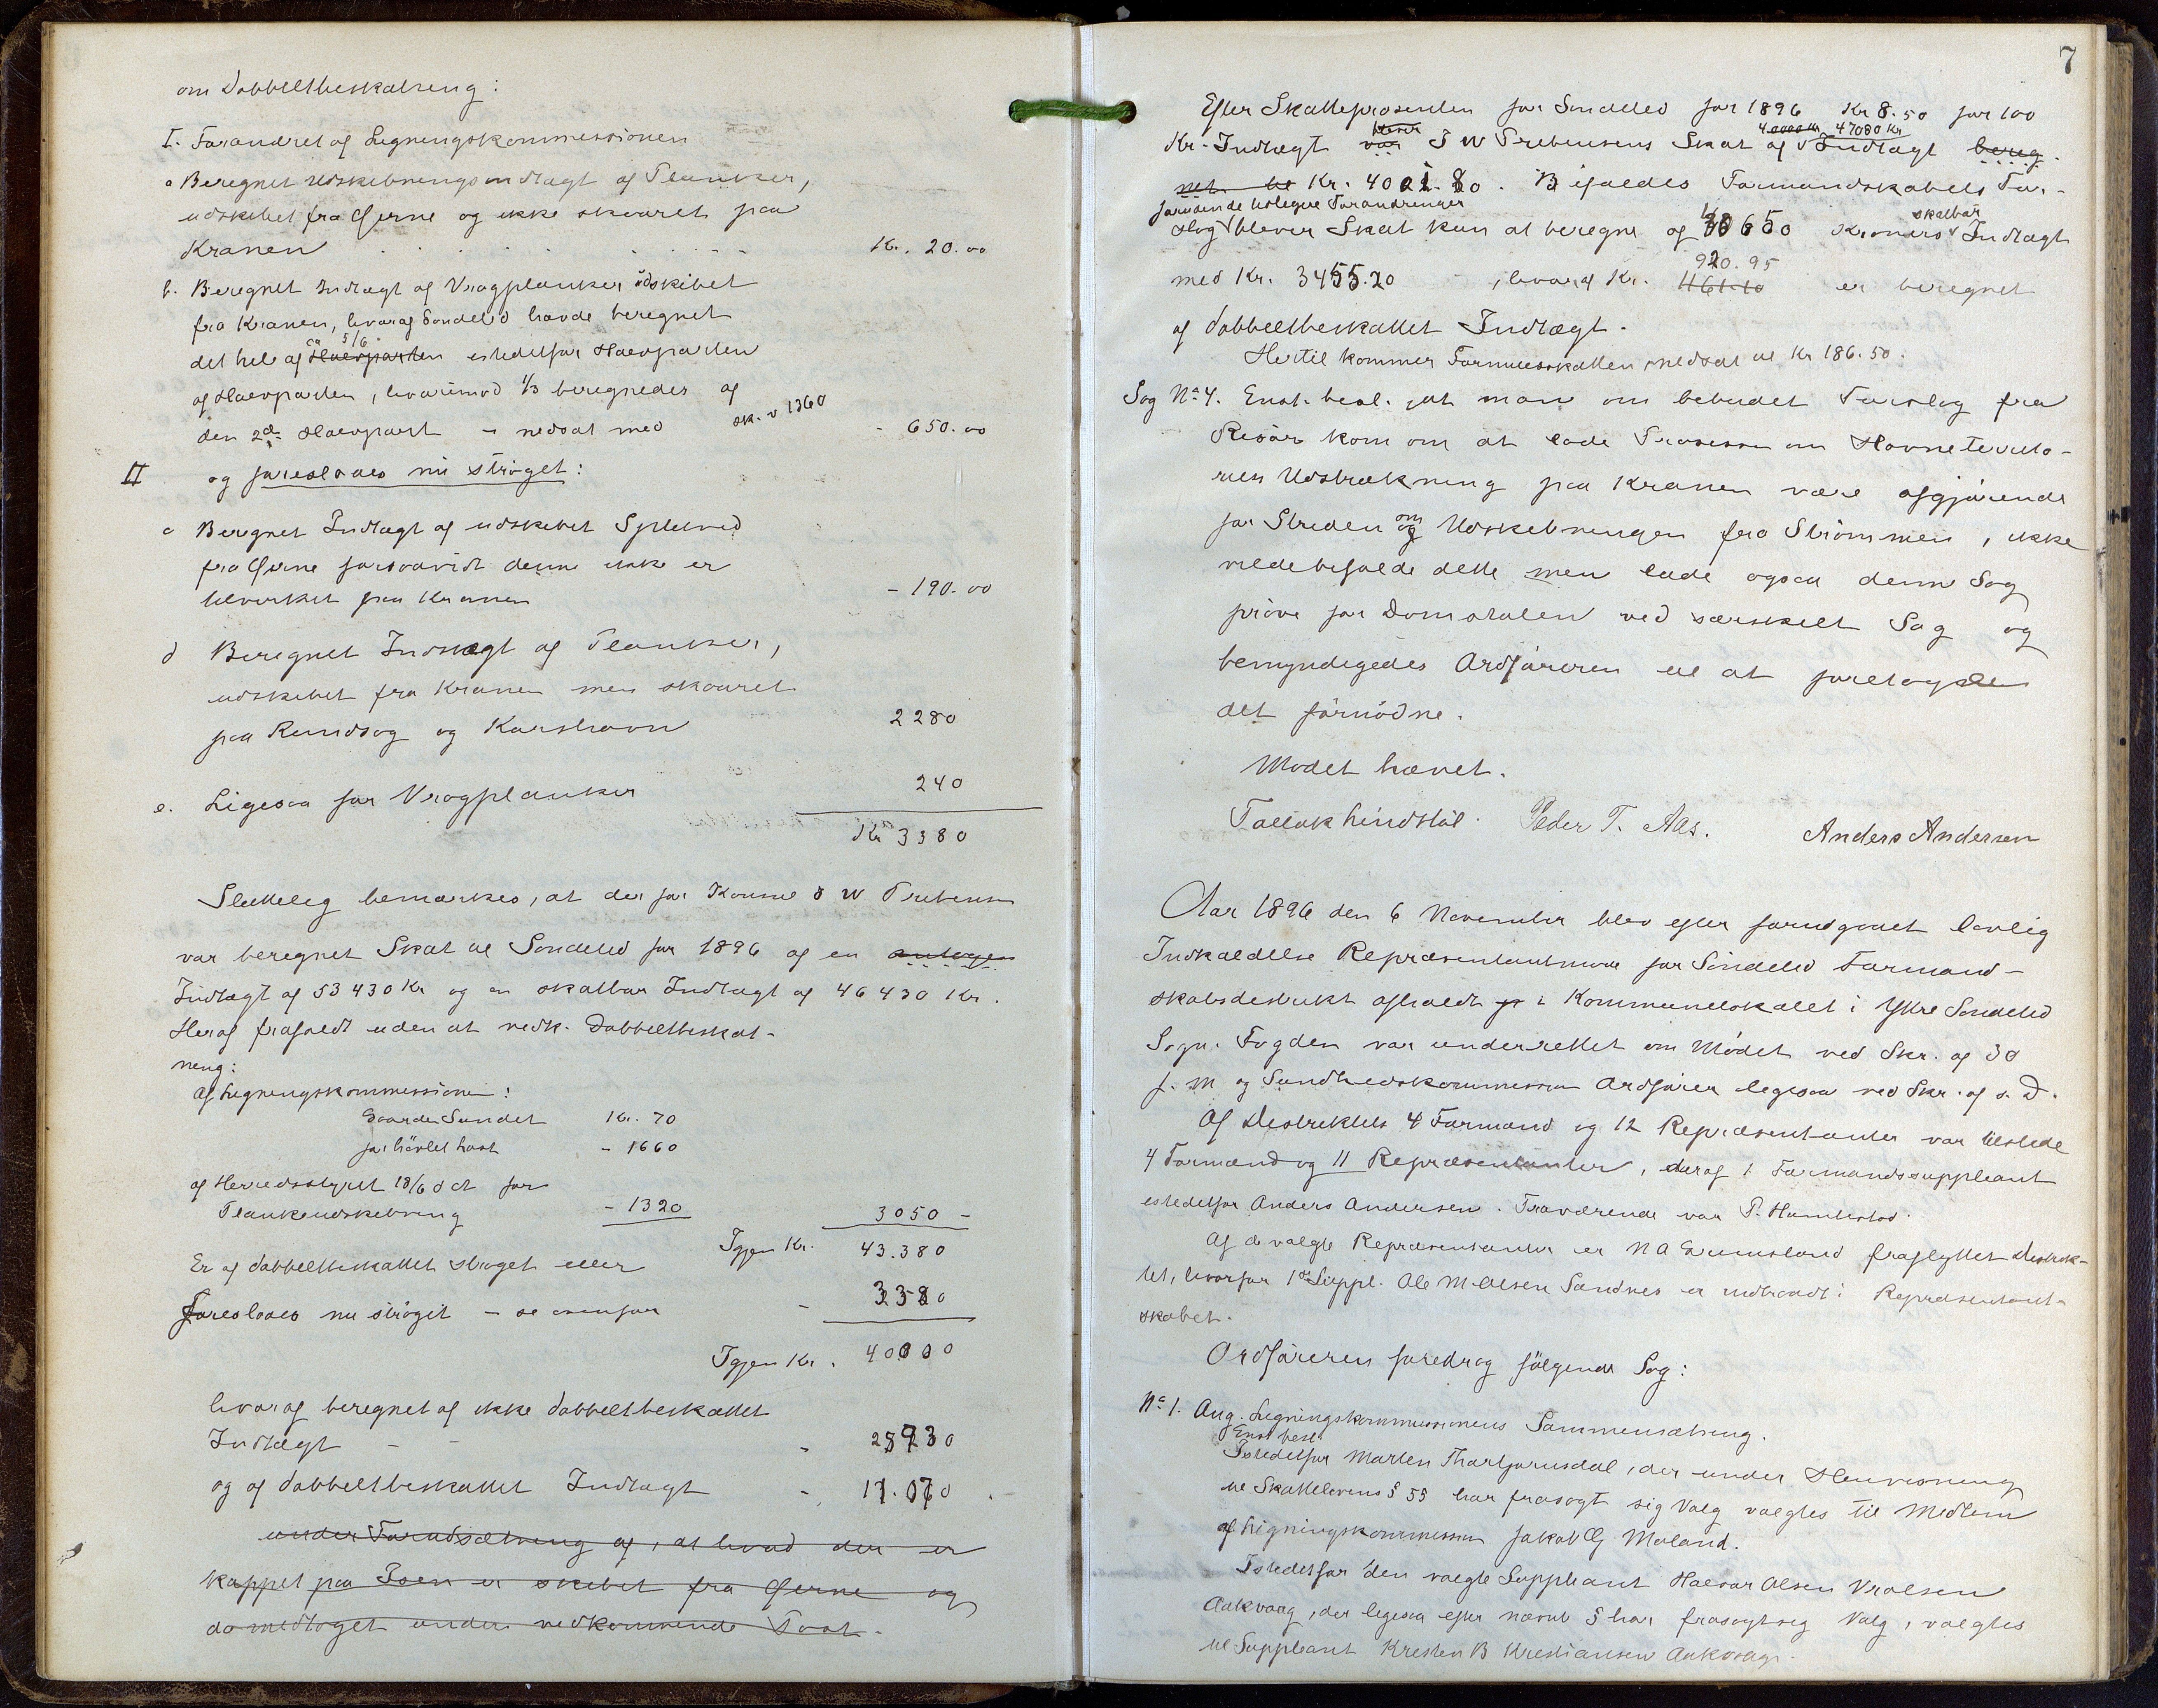 om Dobbeltbeskatning:
I. Forandret af Ligningskommissionen
a Beregnet Udskibningsindtægt af Planker,
udskibet fra Gjerne og ikke skaaret paa
Kranen Kr. 20.00
b. Beregnet Indtægt af Vragplanker udskibet
fra Kranen, hvoraf Søndeled havde beregnet
5/6
det hele af Halvparten istedetfor Halvparten
af Halvparten, hvorimod 1/3 beregnedes af
den 2den Halvpart - nedsat med sk. v 1360 - 650.00
II og foreslaaes nu strøget:
c Beregnet Indtægt af udskibet Splitved
fra Gjerne forsaavidt denne ikke er
tilvirket paa Kranen - 190.00
d Beregnet Indtægt af Planker,
udskibet fra Kranen men skaaret
paa Rundsag og Karshavn 2280
e. Ligesaa for Vragplanker 240
Kr 3380
Sluttelig bemærkes, at der for Konsul J W Prebensen
var beregnet Skat til Søndeled for 1896 af en antagen
Indtægt af 53430 Kr og en skatbar Indtægt af 46430 Kr.
Heraf frafaldt uden at vedk. Dobbeltbeskat-
ning:
Af Ligningskommissionen:
Gaarden Sundet Kr. 70
for høvlet last - 1660
af Herredsstyret 18/6 d A for
Plankeudskibning - 1320 3050 -
Igjen Kr. 43.380
Er af dobbeltbeskattet strøget eller
foreslaaes nu strøget - se ovenfor - 3380
Igjen Kr. 40000
hvoraf beregnet af ikke dobbeltbeskattet
Indtægt - - - 28930
og af dobbeltbeskattet Indtægt - 11.070.
under Forudsætning af, at hvad der er
kappet paa Isen er skibet fra Gjerne og
da medtaget under vedkommende Post.
7
Efter Skatteprosenten for Søndeled for 1896 Kr 8.50 for 100
bliver 40000 Kr 47080 Kr
Kr. Indtægt var J W Prebensens Skat af Indtægt bereg-
net til Kr. 4001.80. Bifaldes Formandskabets For-
foruden de tidligere Forandringer skatbar
slag bliver Skat kun at beregne af 40650 Kroners Indtægt
920.95
med Kr. 3455.20, hvoraf Kr. 461.10 er beregnet
af dobbeltbeskattet Indtægt.
Hertil kommer Formuesskatten, nedsat til Kr 186.50.
Sag No 4. Enst. besl. at man om bebudet Forslag fra
Risør kom om at lade Prosessen om Havneterrito-
riets Udstrækning paa Kranen være afgjørende
for Striden om Udskibningen fra Strømmen, ikke
vilde bifalde dette men lade ogsaa denne Sag
prøve for Domstolen ved særskilt Sag og
bemyndigedes Ordføreren til at foretage
det fornødne.
Mødet hævet.
Tallak Lindstøl. Peder T. Aas. Anders Andersen
Aar 1896 den 6 November blev efter forudgaaet lovlig
Indkaldelse Repræsentantmøde for Søndeled Formand-
skabsdistrikt afholdt i Kommunelokalet i Ytre Søndeled
Sogn. Fogden var underrettet om Mødet ved Skr. af 30
f. M og Sundhedskommissionens Ordfører ligesaa ved Skr. af s. D.
Af Distriktets 4 Formænd og 12 Repræsentanter var tilstede
4 Formænd og 11 Repræsentanter, deraf 1 Formandssuppleant
istedetfor Anders Andersen. Fraværende var P. Humlestad.
Af de valgte Repræsentanter er N A Grimsland fraflyttet Distrik-
tet, hvorfor 1ste Suppl. Ole M Olsen Sandnes er indtraadt i Repræsentant-
skabet.
Ordføreren foredrog følgende Sag:
No 1. Ang. Ligningskommissionens Sammensætning.
Enst. besl.
Istedetfor Marten Thorbjørnsdal, der under Henvisning
til Skattelovens § 55 har frasagt sig Valg valgtes til Medlem
af Ligningskommissionen Jakob G Moland.
Istedetfor den valgte Suppleant Halvor Olsen Vralsen
Aakvaag, der ligesaa efter nævnte § har frasagt sig Valg, valgtes
til Suppleant Kristen B Kristiansen Aakvaag.